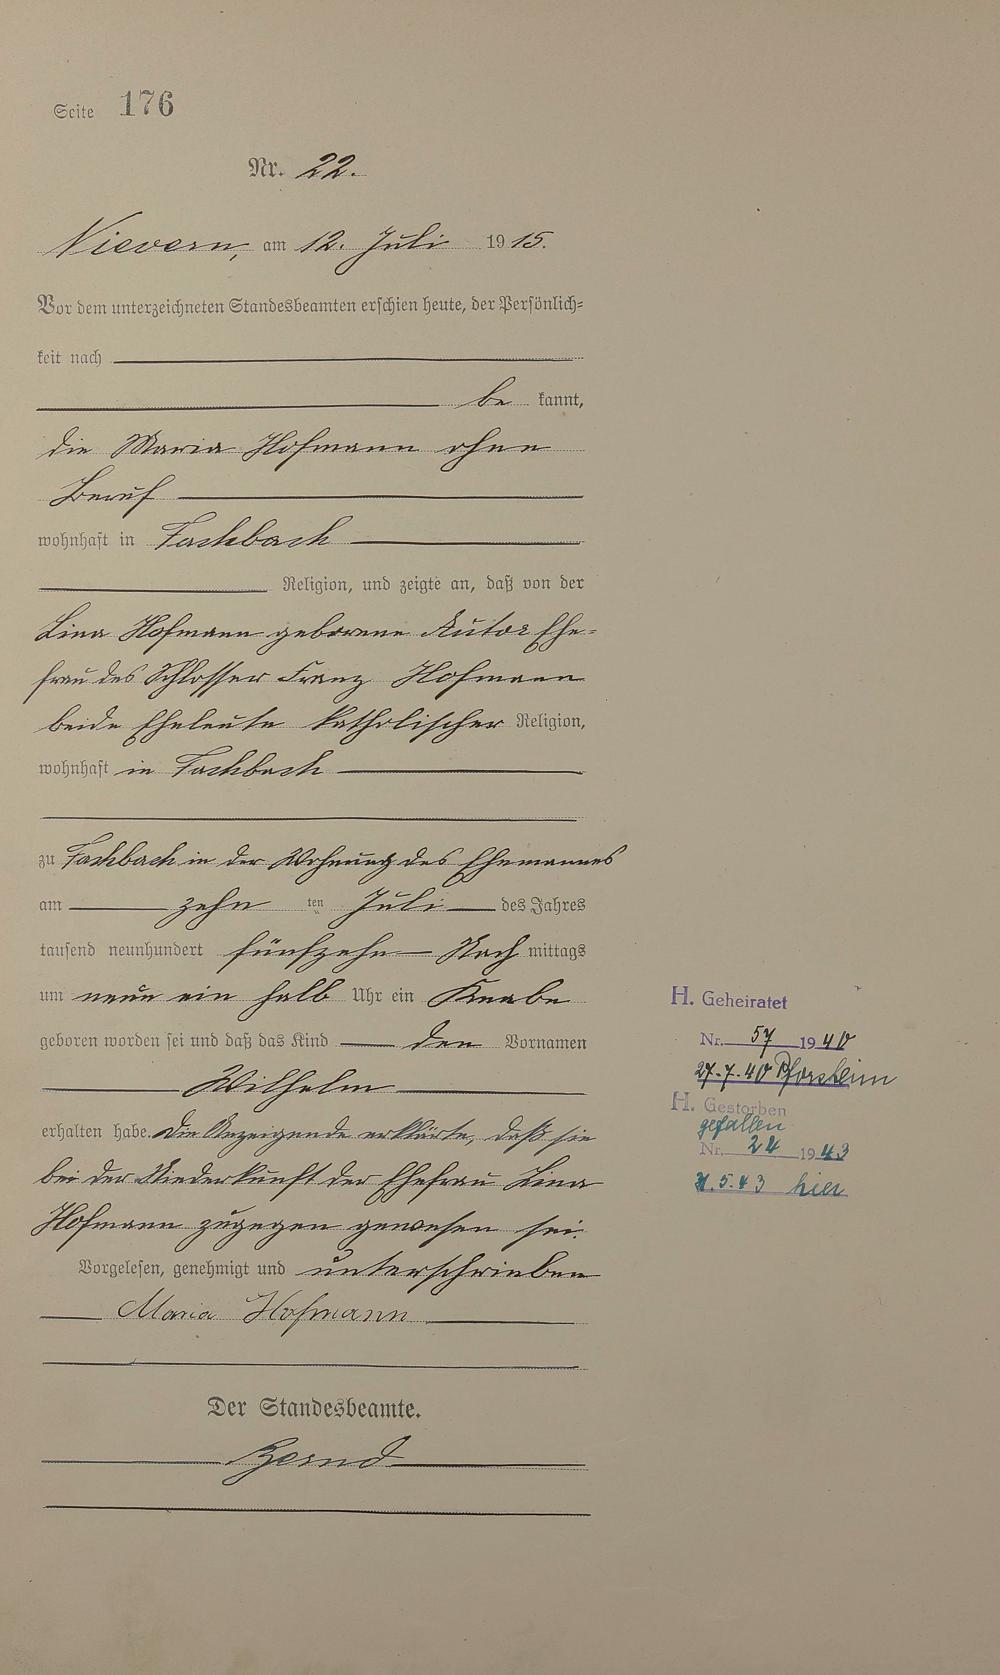 Seite 176
Nr. 22.
Nievern, am 12. Juli 1915.
Vor dem unterzeichneten Standesbeamten erschien heute, der Persönlich-
keit nach
be kannt,
die Maria Hofmann ohne
Beruf
wohnhaft in Fachbach
Religion, und zeigte an, daß von der
Lina Hofmann geborene Ehe-
frau des Schlosser Franz Hofmann
beide Eheleute katholischer Religion,
wohnhaft in Fachbach
zu Fachbach in der Wohnung des Ehemannes
am zehn ten Juli des Jahres
tausend neunhundert fünfzehn Nach mittags
um neun ein halb Uhr ein Knabe
geboren worden sei und daß das Kind den Vornamen
Wilhelm
erhalten habe. Die Anzeigende erklärte, daß sie
bei der Niederkunft der Ehefrau Lina
Hofmann zugegen gewesen sei.
Vorgelesen, genehmigt und unterschrieben
Maria Hofmann
Der Standesbeamte.
H. Geheiratet
Nr. 57 1940
27.7.40 Pforzheim
H. Gestorben
gefallen
Nr. 24 1943
.5.43 hier